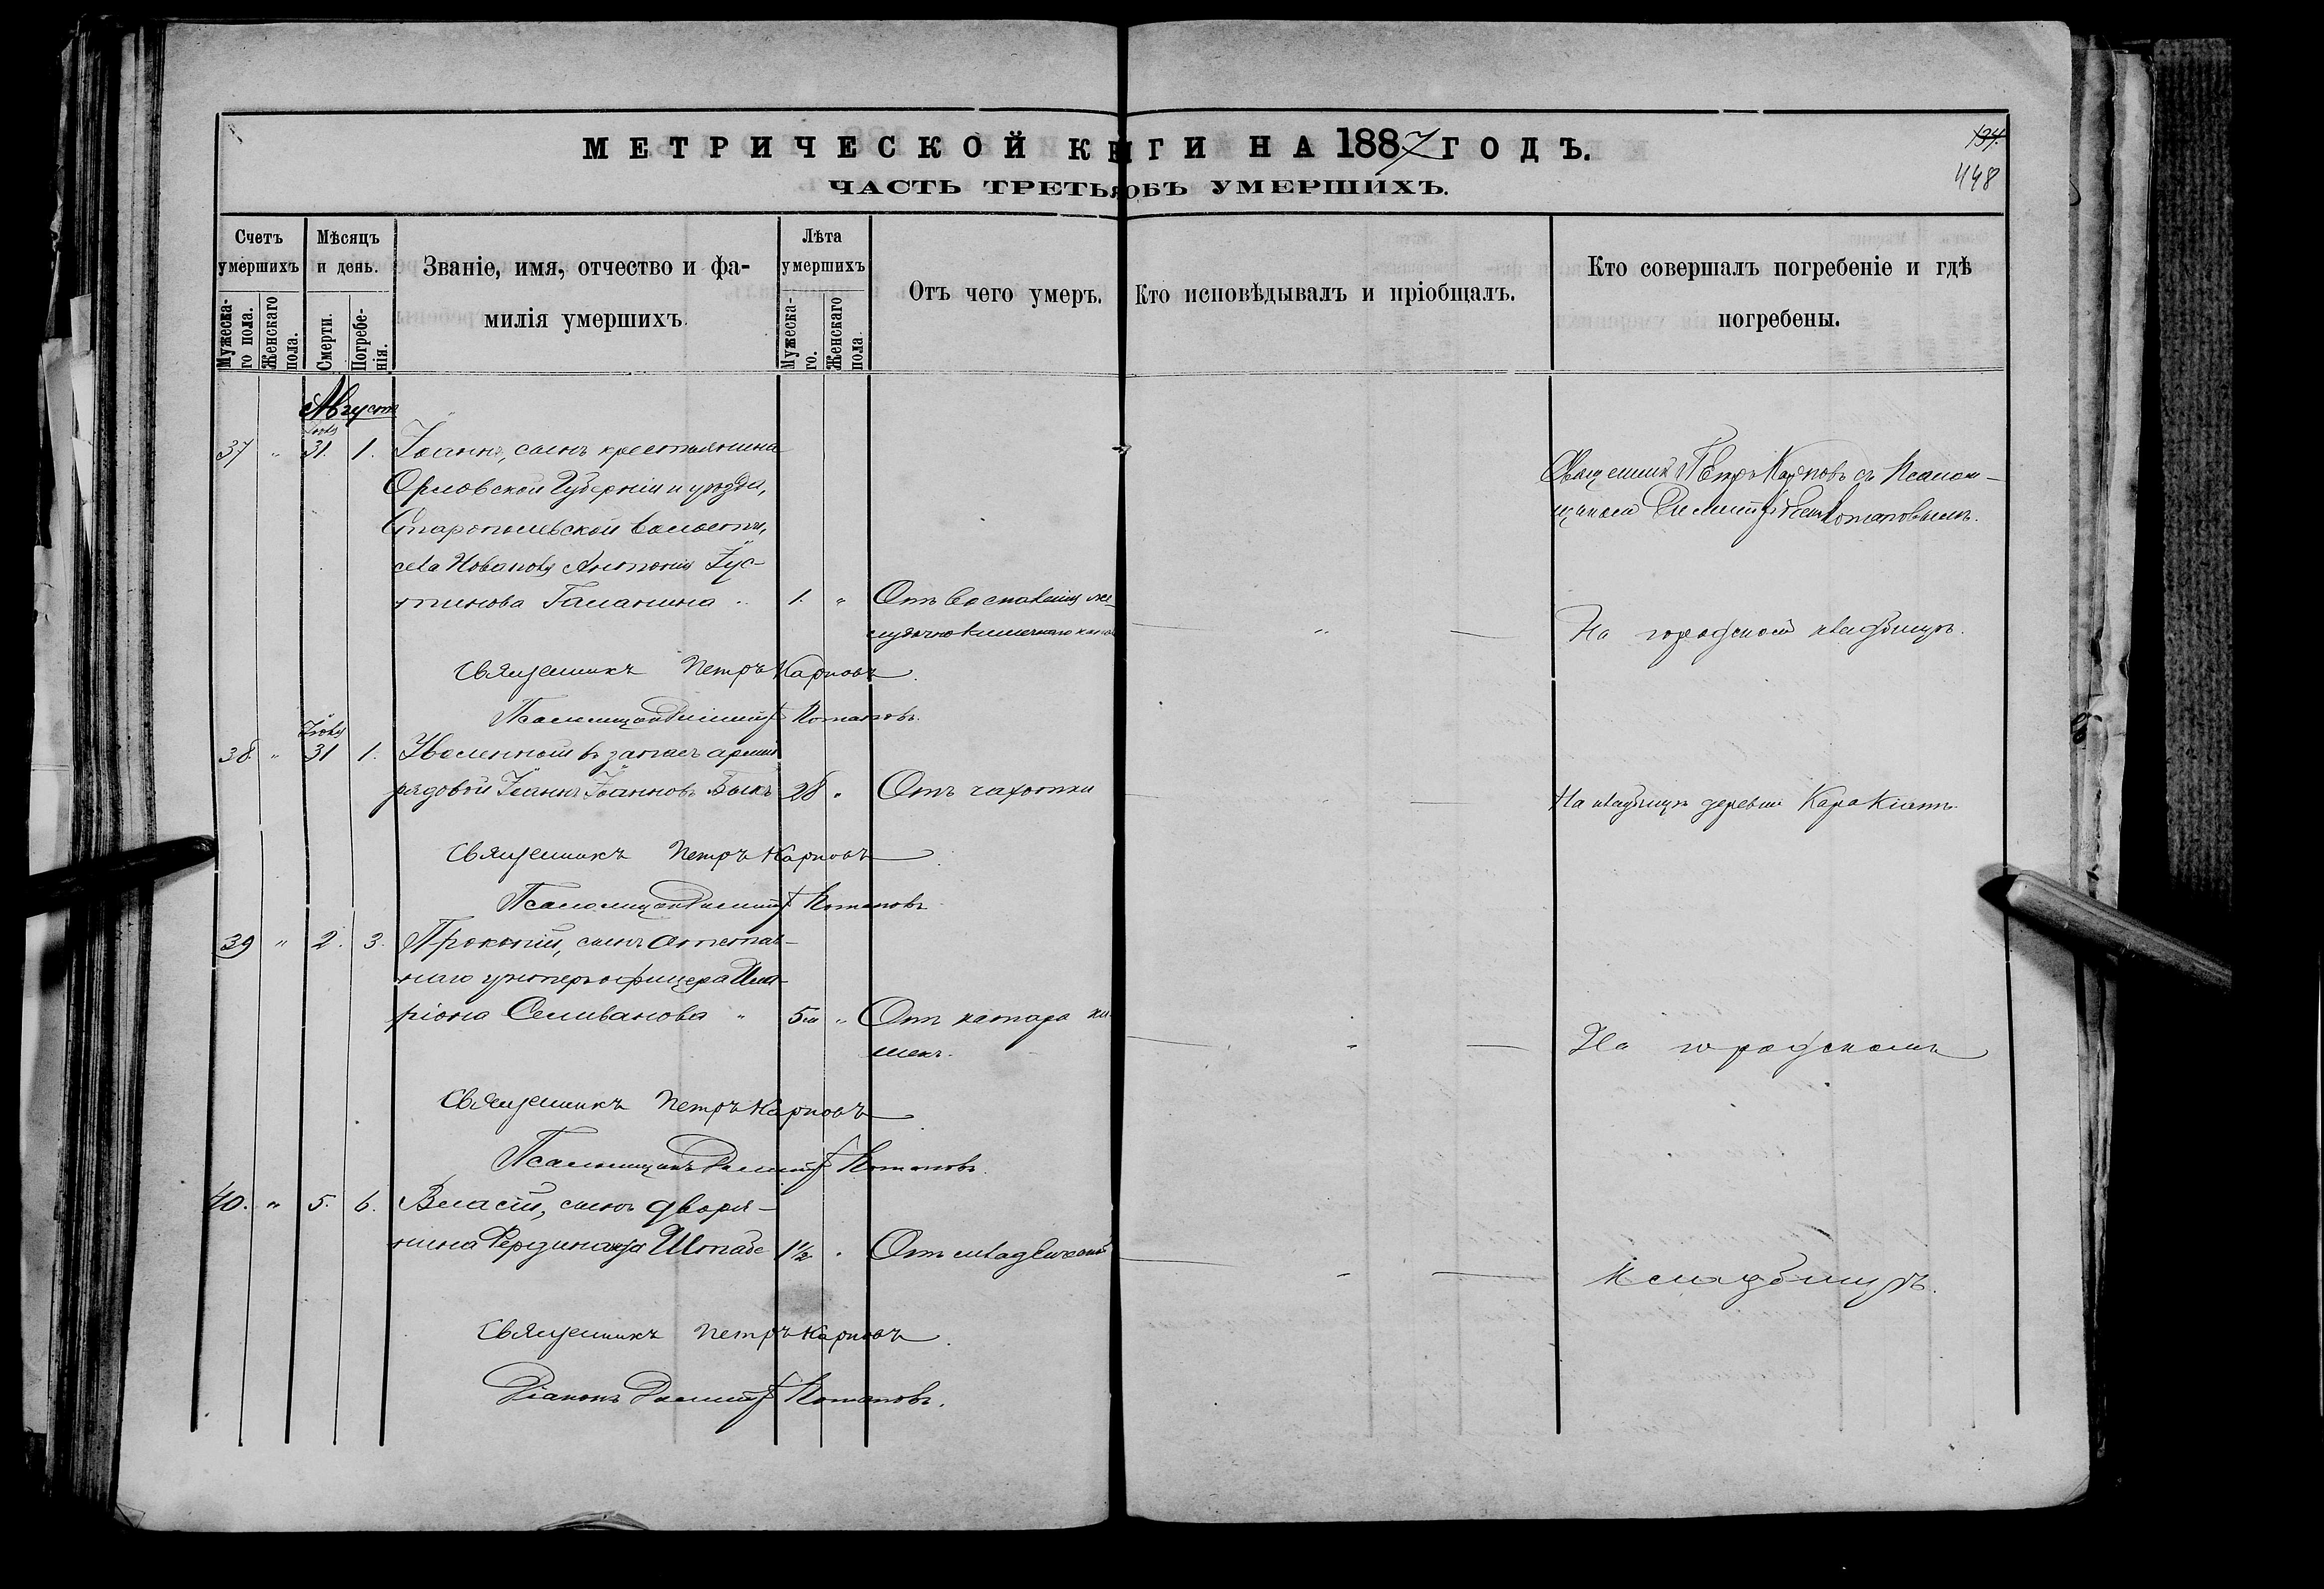 МЕТРИЧЕСКОЙ КНИГИ НА 1887 ГОДЪ.
ЧАСТЬ ТРЕТЬЯ ОБЪ УМЕРШИХЪ.
134.
448
Счетъ умершихъ
Мужеска-го пола.
Женскаго пола.
Мѣсяцъ и день.
Смерти.
Погребе-нія.
Званіе, имя, отчество и фа-
милія умершихъ.
Лѣта умершихъ
Мужеска-го.
Женскаго пола
Отъ чего умеръ.
Кто исповѣдывалъ и пріобщалъ.
Кто совершалъ погребеніе и гдѣ
погребены.
Августъ
Іюля
37 " 31. 1. Іоаннъ, сынъ крестьянина
Орловской Губерніи и уѣзда,
волости,
села Антонія Іус-
тинова Галанина " 1. " Отъ воспаленія же-
лудочно кишечнаго
Священникъ Петръ Карповъ съ Псалом-
щикомъ Димитріемъ Потаповымъ.
На городскомъ кладбищѣ.
Священникъ Петръ Карповъ.
Псаломщикъ Димитрій Потаповъ.
Іюля
38. " 31 1. Уволенный въ запасъ арміи
рядовой Іоаннъ Іоанновъ Быкъ 28 " Отъ чахотки
На кладбищѣ деревни Кара Кіятъ.
Священникъ Петръ Карповъ.
Псаломщикъ Димитрій Потаповъ
39 " 2. 3. Прокопій, сынъ отстав-
наго унтеръ офицера Ила-
ріона Селиванова " 5 м " Отъ катара ки-
шекъ.
На городскомъ
Священникъ Петръ Карповъ.
Псаломщикъ Димитрій Потаповъ.
40. " 5. 6. Власій, сынъ дворя-
нина Фердинанда Шпаде 1 1/2 " Отъ младенческой
кладбищѣ.
Священникъ Петръ Карповъ.
Діаконъ Димитрій Потаповъ.